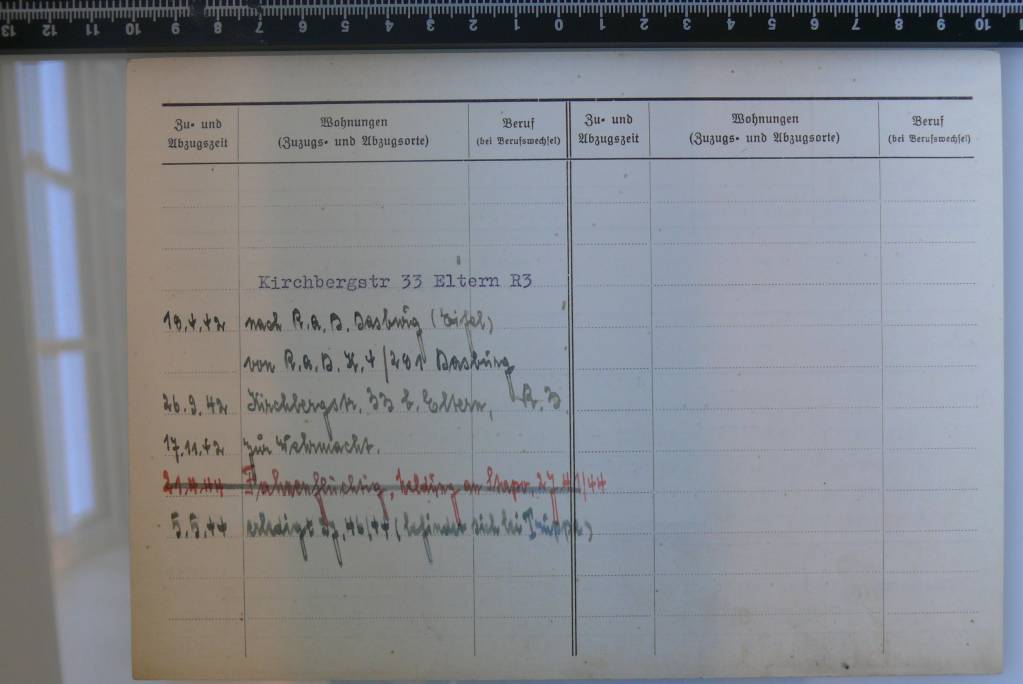 13 12 11 10 9 8 7 6 5 4 3 2 1 0 1 2 3 4 5 6 7 8 9 10
Zu- und Abzugszeit
Wohnungen (Zuzugs- und Abzugsorte)
Beruf (bei Berufswechsel)
Zu- und Abzugszeit
Wohnungen (Zuzugs- und Abzugsorte)
Beruf (bei Berufswechsel)
Kirchbergstr 33 Eltern R3
18.4.42 nach R.A.D. Dasburg (Eifel)
von R.A.D. K.4/281 Dasburg
26.9.42 Kirchbergstr. 33 b. Eltern, R.3.
17.11.42 zur Wehrmacht.
21.4.44 Fahnenflüchtig, Meldung an
5.5.44 erledigt Tg. 46/44 (befindet sich bei Truppe)